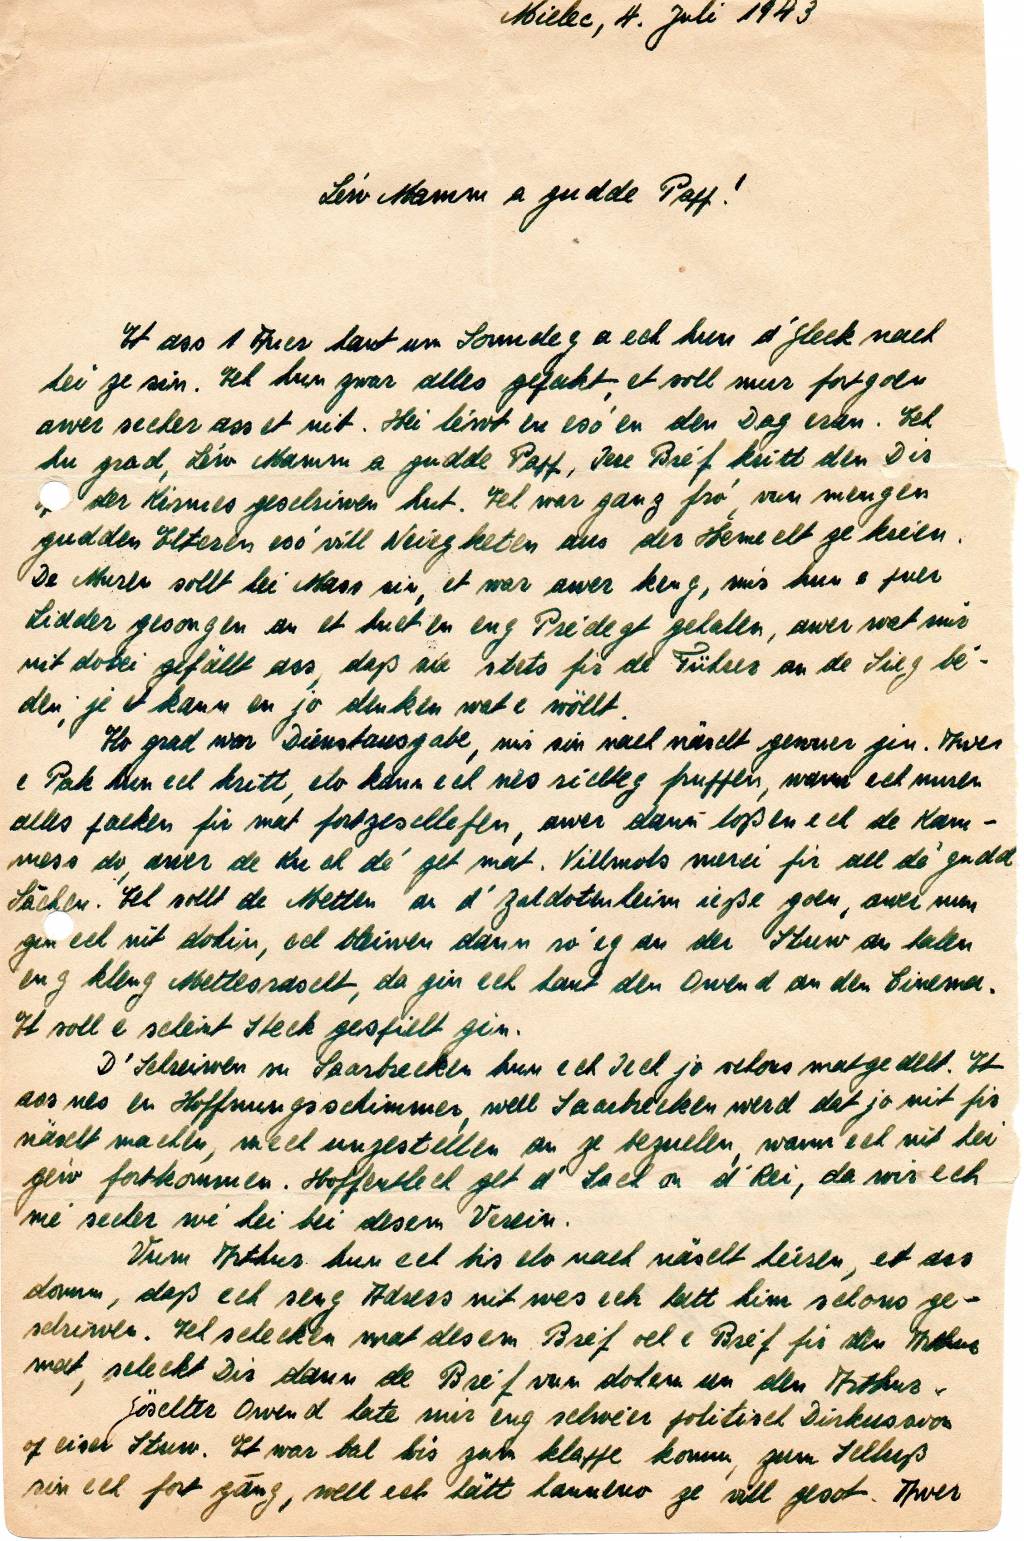 Mielec, 4. Juli 1943
Léiw Mamm a gudde Papp!
Et ass 1 Auer haut um Sonndeg a ech hun d'Gleck nach
hei ze sin. Ech hun zwar alles gepakt, et soll mur fortgoen
awer secher ass et nit. Hei léwt en esó en den Dag eran. Ech
hu grad, Léiw Mamm a gudde Papp, Iere Bréf kritt den Dir
der Kirmes geschriwen hut. Ech war ganz fró, vun mengen
gudden Elteren esó vill Neiegketen aus der Hémecht ze kréien.
De Muren sollt hei Mass sin, et war awer keng, mir hun e puer
Lidder gesongen an et huet en eng Priédegt gehalen, awer wat mir
nit dobei gefällt ass, daß sie stets fir de Führer an de Sieg bé-
den, je et kann en jo denken wat e wöllt.
Elo grad war Dienstausgabe, mir sin nach näischt gewuer gin. Awer
e Pak hun ech kritt, elo kann ech nes richteg fruppen, wann ech muren
alles packen fir mat fortzeschlefen, awer dann loßen ech de Kam-
mess do, awer de Kuch dé get mat. Villmols merci fir all dé gudd
Sachen. Ech sollt de Metten an d'Zaldotenheim ieße goen, awer nun
gin ech nit dohin, ech bleiwen dann ró'eg an der Stuw an halen
eng kleng Mettesrascht, da gin ech haut den Owend an den Cinema.
Et soll e scheint Steck gespielt gin.
D'Schreiwen vu Saarbrecken hun ech Iech jo schons matgedelt. Et
ass nes en Hoffnungsschimmer, well Saarbrecken werd dat jo nit fir
näischt machen, mech unzestellen an ze bezuelen, wann ech nit hei
géiw fortkommen. Hoffentlech get d'Sach an d'Rei, da wir ech
mé secher wé hei bei desem Verein.
Vum Arthur hun ech bis elo nach näischt héieren, et ass
dorun, daß ech seng Adress nit wes ech hätt him schons ge-
schriwen. Ech schecken mat desem Bréf och e Bréf fir den Arthur
mat, scheckt Dir dann de Bréf vun dohem un den Arthur.
Göschter Owend hate mir eng schwéier politisch Diskussion
op eiser Stuw. Et war bal bis zum klappe komm, zum Schluß
sin ech fort gang, well ech hätt hannenno ze vill gesot. Awer